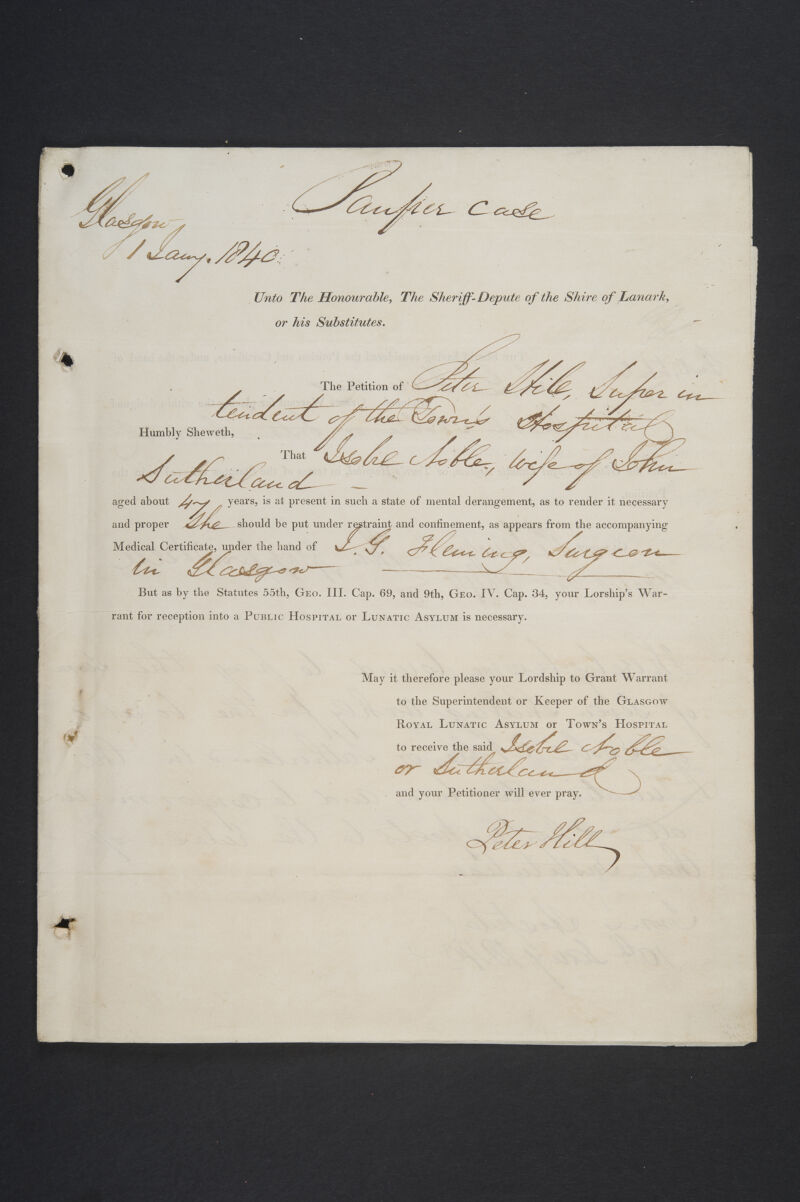 Pauper case
Glasgow
1 Jany. 1840
Unto The Honourable, The Sheriff-Depute of the Shire of Lanark,
or his Substitutes.
The Petition of Peter Hill, Superin
tendent of the Town's Hospital
Humbly Sheweth,
That Isobel Noble, wife of John
Sutherland
aged about 47 years, is at present in such a state of mental derangement, as to render it necessary
and proper She should be put under restraint and confinement, as appears from the accompanying
Medical Certificate, under the hand of J. G. Fleming, Surgeon
in Glasgow
But as by the Statutes 55th, Geo. III. Cap. 69, and 9th, Geo. IV. Cap. 34, your Lorship's War-
rant for reception into a Public Hospital or Lunatic Asylum is necessary.
May it therefore please your Lordship to Grant Warrant
to the Superintendent or Keeper of the Glasgow
Royal Lunatic Asylum or Town's Hospital
to receive the said Isobel Noble
or Sutherland
and your Petitioner will ever pray.
Peter Hill